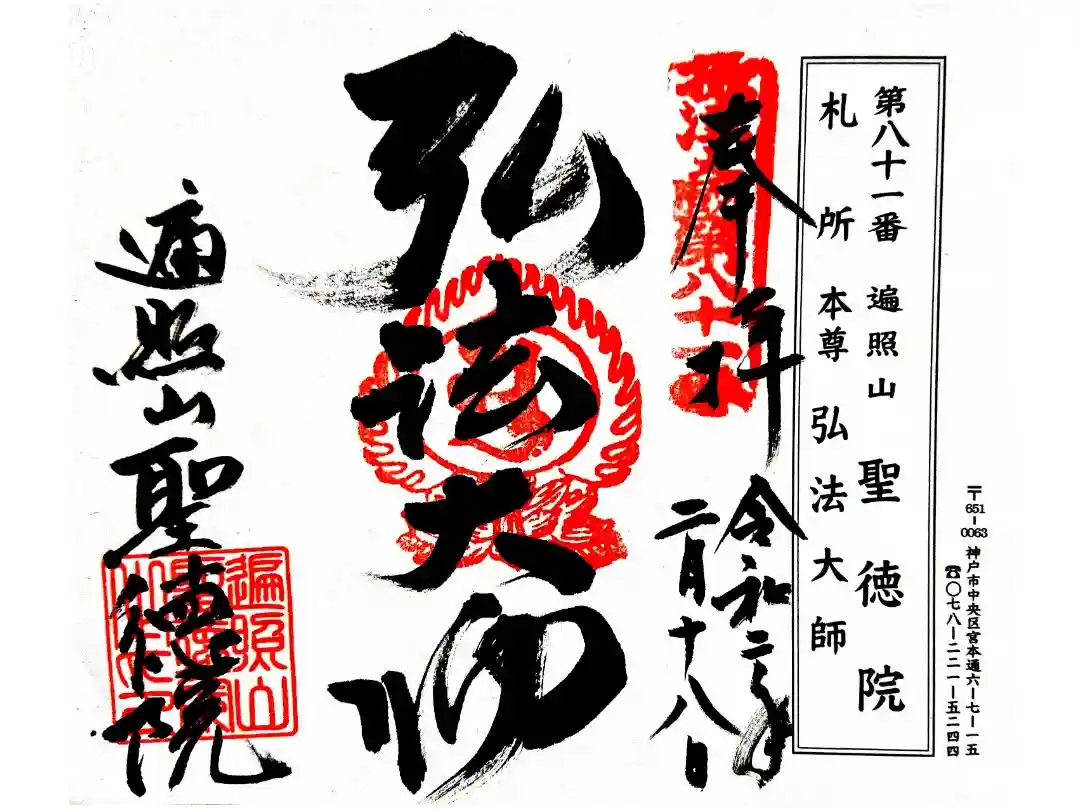 〒651-0063 神戸市中央区宮本通六ー七ー一五
☎〇七八ー二二一ー五二四四
第八十一番 遍照山 聖徳院
札所 本尊 弘法大師
奉拝
令和二年
二月十八日
弘法大師
遍照山聖徳院
遍照山